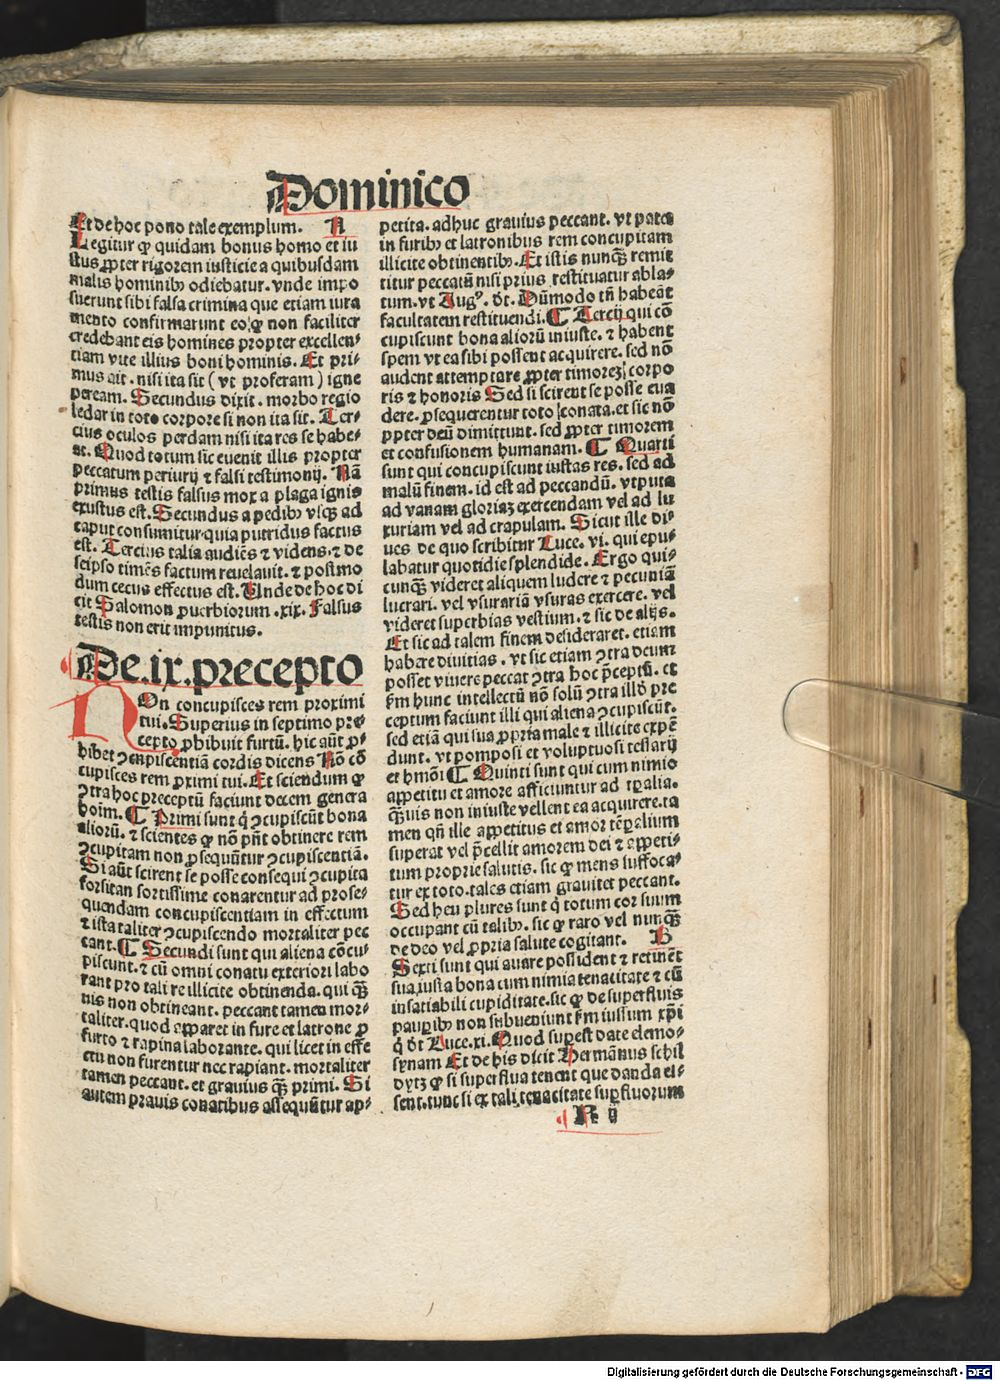 Dominico
Et de hoc pono tale exemplum. A
Legitur ꝙ quidam bonus homo et iu
stus ꝓpter rigorem iusticie a quibusdam
malis hominibꝫ odiebatur. vnde impo
suerunt sibi falsa crimina que etiam iura
mento confirmarunt eo ꝙ non faciliter
credebant eis homines propter excellen⸗
tiam vite illius boni hominis. Et pri⸗
mus ait. nisi ita sit (vt proferam) igne
peream. Secundus dixit. morbo regio
ledar in toto corpore si non ita sit. Ter⸗
cius oculos perdam nisi ita res se habe⸗
at. Quod totum sic̄ euenit illis propter
peccatum periurij ⁊ falsi testimonij. Nā
primus testis falsus mox a plaga ignis
exustus est. Secundus a pedibꝫ vsqꝫ ad
caput consumitur quia putridus factus
est. Tercius talia audiēs ⁊ videns. ⁊ de
seipso timēs factum reuelauit. ⁊ postmo
dum cecus effectus est. Unde de hoc di
cit Salomon ꝓuerbiorum .xix. Falsus
testis non erit impunitus.
De .ix. precepto
NOn concupisces rem proximi
tui. Superius in septimo pre⸗
cepto ꝓhibuit furtū. hic aūt ꝓ⸗
hibet ꝯcupiscentiā cordis dicens Nō cō
cupisces rem ꝓximi tui. Et sciendum ꝙ
ꝯtra hoc preceptū faciunt decem genera
hoīm. ¶ Primi sunt q̇ ꝯcupiscūt bona
aliorū. ⁊ scientes ꝙ nō pn̄t obtinere rem
ꝯcupitam non ꝓsequūtur ꝯcupiscentiā.
Si aūt scirent se posse consequi ꝯcupita
forsitan fortissime conarentur ad prose⸗
quendam concupiscentiam in effectum
⁊ ista taliter ꝯcupiscendo mortaliter pec
cant. ¶ Secundi sunt qui aliena cōcu⸗
piscunt. ⁊ cū omni conatu exteriori labo
rant pro tali re illicite obtinenda. qui qꝫ̄
uis non obtineant. peccant tamen mor⸗
taliter. quod apparet in fure et latrone ꝓ
furto ⁊ rapina laborante. qui licet in effe
ctu non furentur nec rapiant. mortaliter
tamen peccant. et grauius qꝫ̄ primi. Si
autem prauis conatibus assequūtur ap⸗
petita. adhuc grauius peccant. vt patet
in furibꝫ et latronibus rem concupitam
illicite obtinentibꝫ. Et istis nunqꝫ̄ remit
titur peccatū nisi prius restituatur abla⸗
tum. vt Augꝰ. dt̄. Dūmodo tn̄ habeāt
facultatem restituendi. ¶ Tercij qui cō
cupiscunt bona aliorū iniuste. ⁊ habent
spem vt ea sibi possent acquirere. sed nō
audent attemptare ꝓpter timorē corpo
ris ⁊ honoris Sed si scirent se posse eua
dere. ꝓsequerentur toto conata. et sic nō
ꝓpter deū dimittunt. sed ꝓpter timorem
et confusionem humanam. ¶ Quarti
sunt qui concupiscunt iustas res. sed ad
malū finem. id est ad peccandū. vtputa
ad vanam gloriaꝫ exercendam vel ad lu
xuriam vel ad crapulam. Sicut ille di⸗
ues de quo scribitur Luce. vi. qui epu⸗
labatur quotidie splendide. Ergo qui⸗
cunqꝫ videret aliquem ludere ⁊ pecuniā
lucrari. vel vsurariā vsuras exercere. vel
videret superbias vestium. ⁊ sic de alijs.
Et sic ad talem finem desideraret. etiam
habere diuitias. vt sic etiam ꝯtra deum
posset viuere peccat ꝯtra hoc p̄ceptū. et
ẜm hunc intellectū nō solū ꝯtra illō pre
ceptum faciunt illi qui aliena ꝯcupiscūt.
sed etiā qui sua ꝓpria male ⁊ illicite expē
dunt. vt pomposi et voluptuosi tessarij
et hmōi ¶ Quinti sunt qui cum nimio
appetitu et amore afficiuntur ad tp̄alia.
qꝫ̄uis non iniuste vellent ea acquirere. ta
men qn̄ ille appetitus et amor tēꝑalium
superat vel p̄cellit amorem dei ⁊ appeti⸗
tum proprie salutis. sic ꝙ mens suffoca⸗
tur ex toto. tales etiam grauiter peccant.
Sed heu plures sunt q̇ totum cor suum
occupant cū talibꝫ. sic ꝙ raro vel nunqꝫ̄
de deo vel ꝓpria salute cogitant. B
Sexti sunt qui auare possident ⁊ retinēt
sua iusta bona cum nimia tenacitate ⁊ cū
insatiabili cupiditate. sic ꝙ de superfluis
pauꝑibꝫ non subueniunt ẜm iussum xp̄i
q̇ dt̄ Luce. xi. Quod suꝑest date elemo⸗
synam Et de his dicit Hermānus schil
dytz ꝙ si superflua tenent que danda es⸗
sent. tunc si ex tali tenacitate suꝑfluorum
R ij
Digitalisierung gefördert durch die Deutsche Forschungsgemeinschaft - DFG